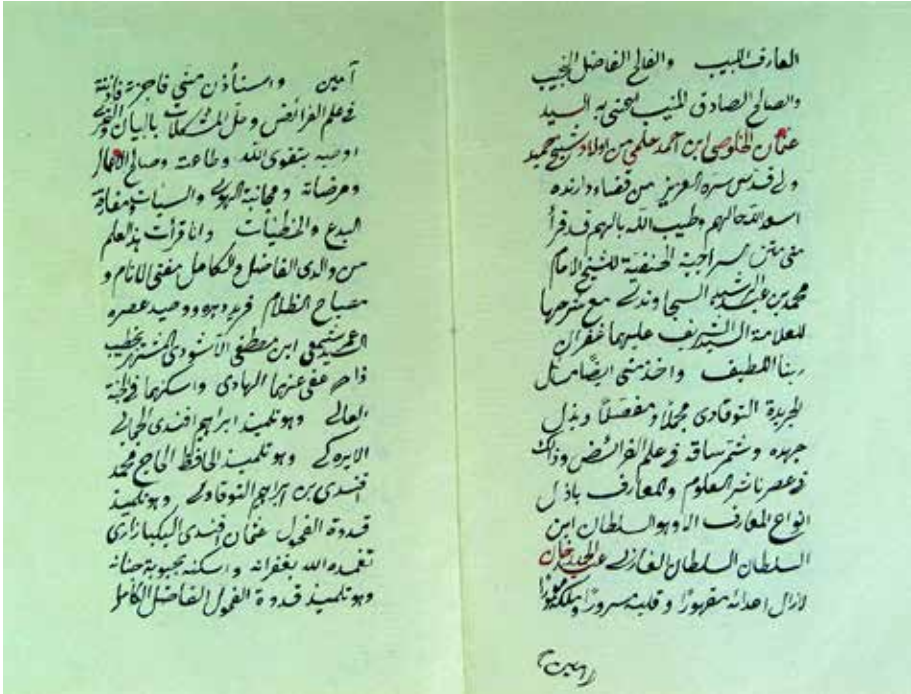 العارف اللبيب والفالح الفاضل النجيب
والصالح الصادق المنيب اعنى به السيد
عثمان الخلوصى ابن احمد علمى من اولاد شيخ حميد
ولى قدس سره العزيز من قضاء دارنده
اسعد الله حالهم وطيب الله بالهم قد قرأ
منى متن سراجية الحنفية للشيخ الامام
محمد بن عبد الرشيد السجاوندى مع شرحها
للعلامة السيد الشريف عليهما غفران
ربنا اللطيف واخذ منى ايضًا مسائل
الجريدة التوقادى مجملًا و مفصلًا وبذل
جهده وشمر ساقه فى علم الفرائض وذلك
فى عصر ناشر العلوم والمعارف باذل
انواع المعارف الا وهو السلطان ابن
السلطان السلطان الغازى عبد الحميد خان
لازال اعدائه مقهورًا و قلبه سرورًا وملكه معمورًا
(آمين)
آمين واستأذن منى فاجزته فاذنته
فى علم الفرائض وحل المشكلات بالبيان و
اوصيه بتقوى الله وطاعته وصالح الاعمال
ومرضاته ومجانبة الهوى والسيئات ومفارقة
البدع والخطيئات وانا قرأت هذا العلم
من والدى الفاضل والكامل مفتى الانام و
مصباح الظلام فريد دهره ووحيد عصره
السيد ابن مصطفى المشتهر بخطيب
عفى عنهما الهادى واسكنهما فى الجنة
العالى وهو تلميذ ابراهيم افندى
وهو تلميذ الحافظ الحاج محمد
افندى بن ابراهيم التوقادى وهو تلميذ
قدوة الفحول عثمان افندى البكبازارى
تغمده الله بغفرانه واسكنه بحبوبة جنانه
وهو تلميذ قدوة الفحول الفاضل الكامل